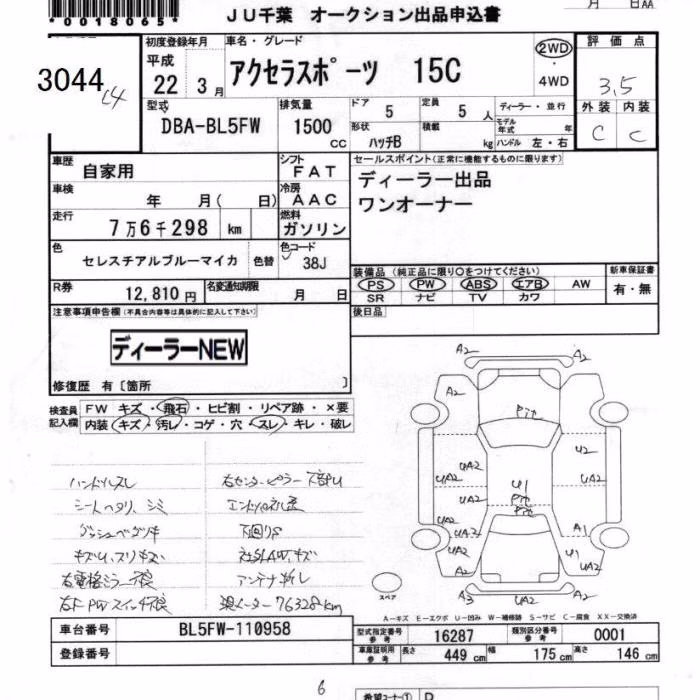 *0018065*
JU千葉 オークション出品申込書
月 日AA
3044
C4
初度登録年月
平成
22 3月
車名・グレード
アクセラスポーツ 15C
2WD
4WD
評価点
3.5
外装 内装
C C
型式
DBA-BL5FW
排気量
1500
CC
ドア 5
定員 5 人
ディーラー・並行
形状 ハッチB
積載 kg
モデル年式 年
ハンドル 左・右
車歴
自家用
シフト
FAT
セールスポイント(正常に機能するものに限ります)
ディーラー出品
ワンオーナー
車検
年 月( 日)
冷房
AAC
走行
7万6千298 km
燃料
ガソリン
色
セレスチアルブルーマイカ
色替
色コード
38J
R券
12,810円
名変通知期限
月 日
装備品(純正品に限り○をつけてください)
PS PW ABS エアB AW
SR ナビ TV カワ
新車保証書
有・無
注意事項申告欄(不具合内容等は具体的に記入して下さい)
後日品
ディーラーNEW
修復歴 有〔箇所 〕
検査員
記入欄
FW キズ・飛石・ヒビ割・リペア跡・×要
内装 キズ・汚レ・コゲ・穴・スレ・キレ・破レ
ハンドルスレ
シートヘタリ、シミ
ダッシュベタツキ
キズU、スリキズ
右電格ミラー不良
右F PWスイッチ不良
右センターピラー下部U
下回りS
社外AW、キズ
アンテナ折レ
実メーター 76328km
A2 A2
A2 A2
Pit
U2
UA2 UA2
U1
Pit
Pit
UA2 UA2
UA2
UA3 A1
UA2 U1
UA2
A2
A3 A2 A2
スペア
A-キズ E-エクボ U-凹み W-補修跡 S-サビ C-腐食 XX-交換済
車台番号 BL5FW-110958
登録番号
型式指定番号
参考
16287
類別区分番号
参考
0001
車庫証明用
参考
長さ 449 cm
幅 175 cm
高さ 146 cm
6
希望コーナー① D